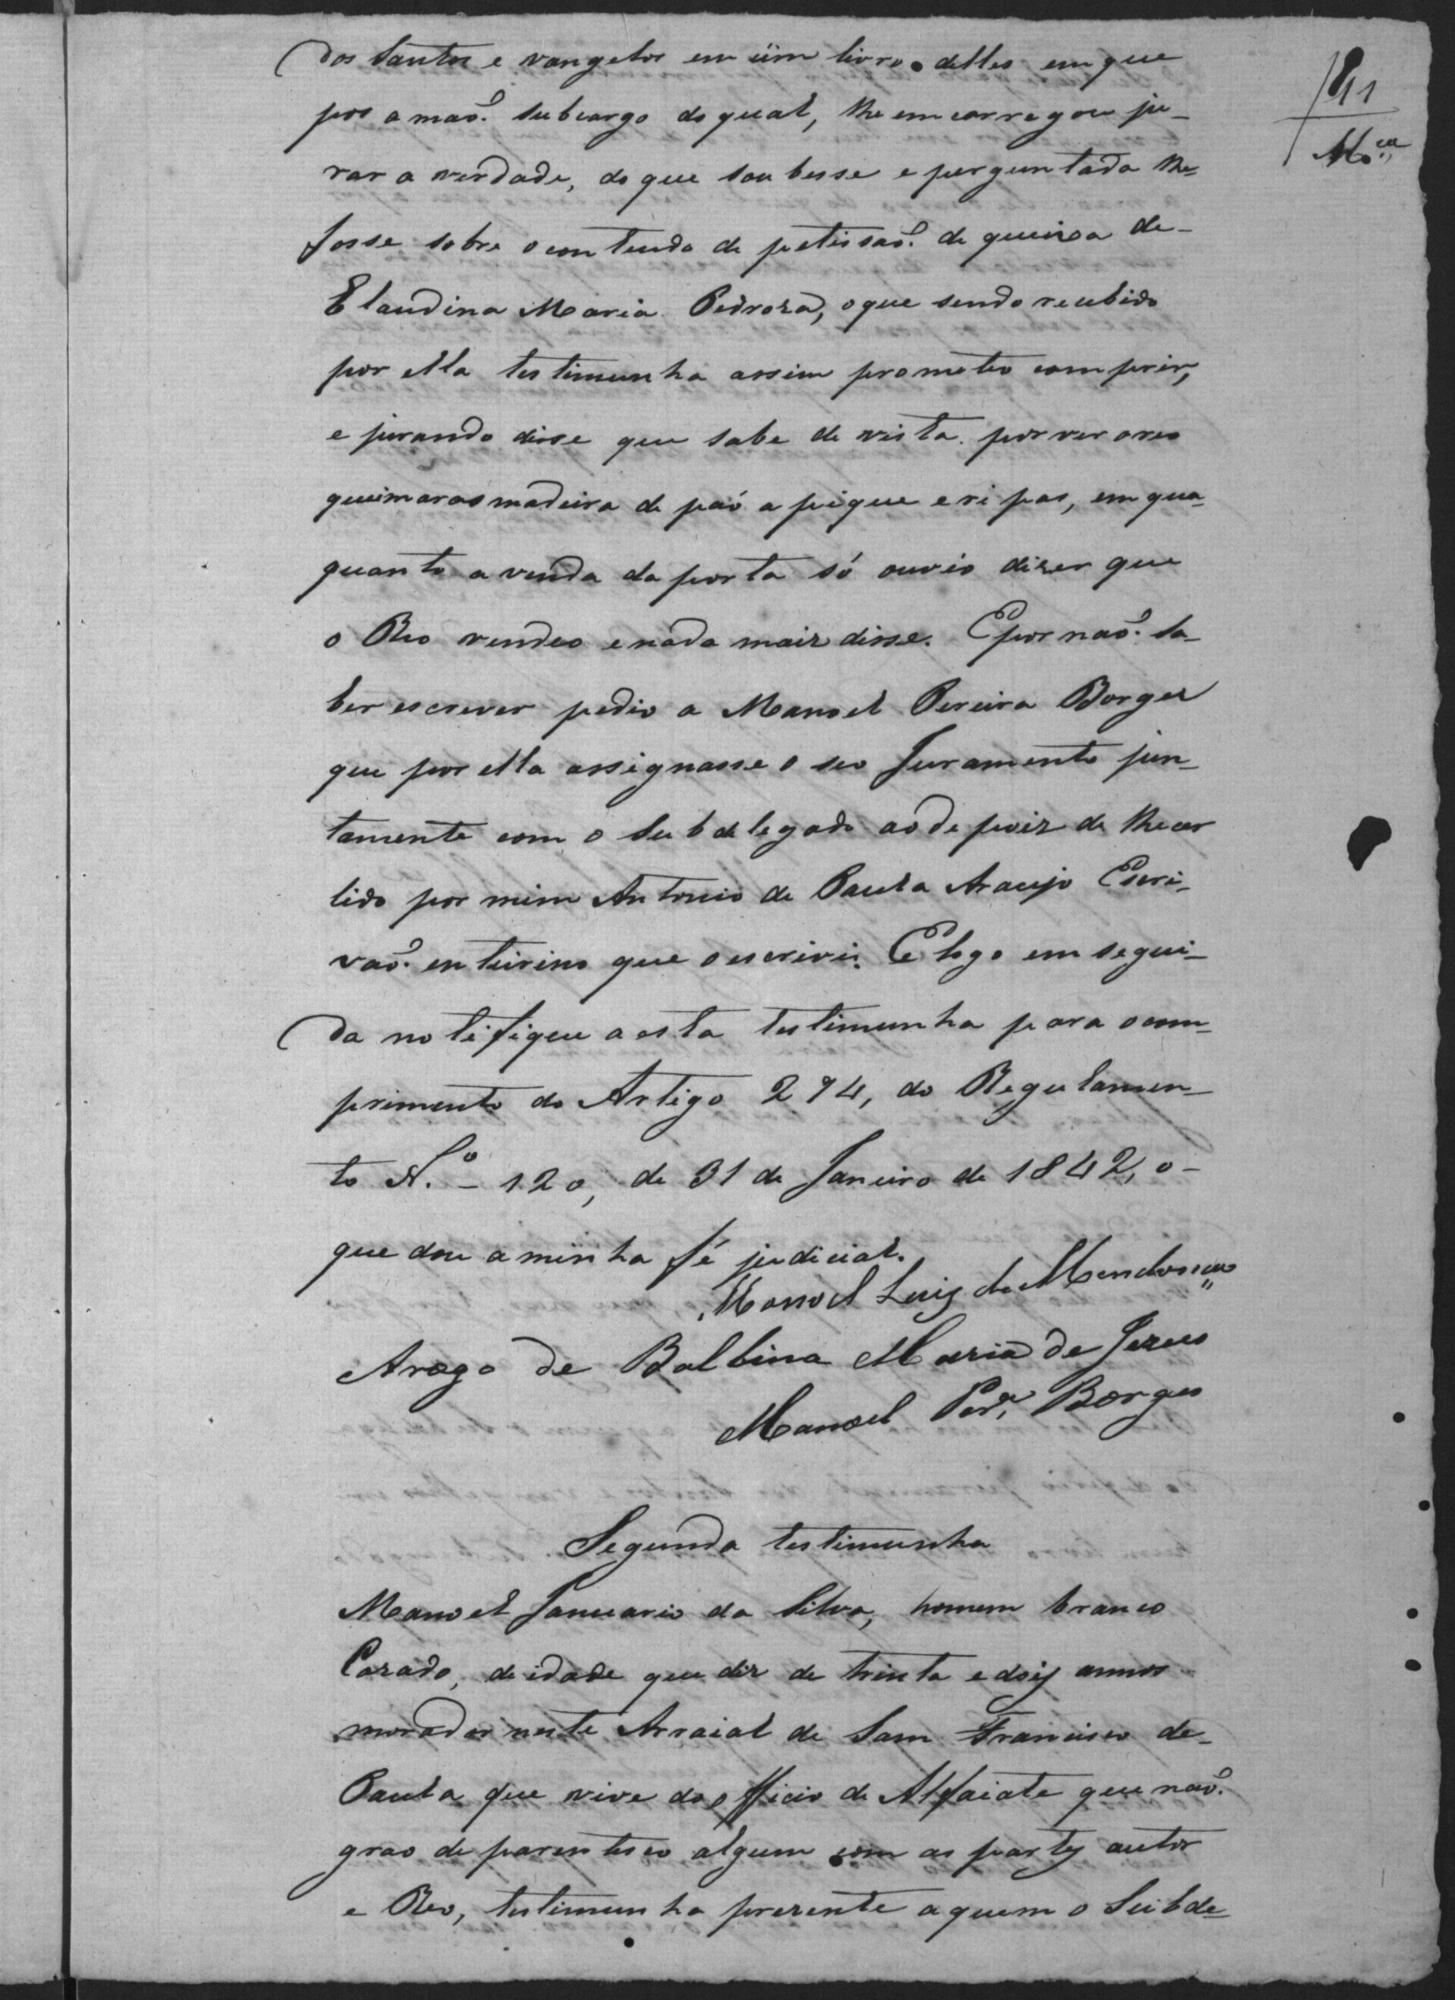 11
M.ça
dos Santos e vangelos em üm livro delles em que
pos a maõ. subcargo do qual, lhe emcarregou ju-
rar a verdade, do que soubesse e perguntada lhe
fosse sobre o contendo de petissaõ. de queixa de-
Claudina Maria Pedroza, o que sendo recebido
por ella testimunha assim prometeo comprir,
e jurando disse que sabe de vista por ver o reo
queimar as madeira de paó a pique e ripas, em qua-
quanto a venda da porta só ouvio dizer que
o Reo vendeo e nada maiz disse. E por naõ. sa-
ber escrever pedio a Manoel Pereira Borgez
que por ella assignasse o seo Juramento jun-
tamente com o Subdelegado ao depoiz de lhe cer
lido por mim Antonio de Paula Araujo Escri-
vaõ. enteirino que o escrivi. E logo em segui-
da notifiquei a esta testimunha para o com-
primento do Artigo 294, do Regulamen-
to N.o - 120, de 31 de Janeiro de 1842, o-
que dou a minha fé judicial.
Manoel Luiz de Mendonça
Arogo de Balbina Maria de Jezus
Manoel Per.a Borges
Segunda testimunha
Manoel Januario da Silva, homem branco
Cazado, de idade que diz de trinta e dois annos
morador neste Arraial de Sam Francisco de-
Paula que vive do officio de Alfaiate que naõ.
grao de parentesco algum com as partes autor
e Reo, testimunha prezente a quem o Subde-